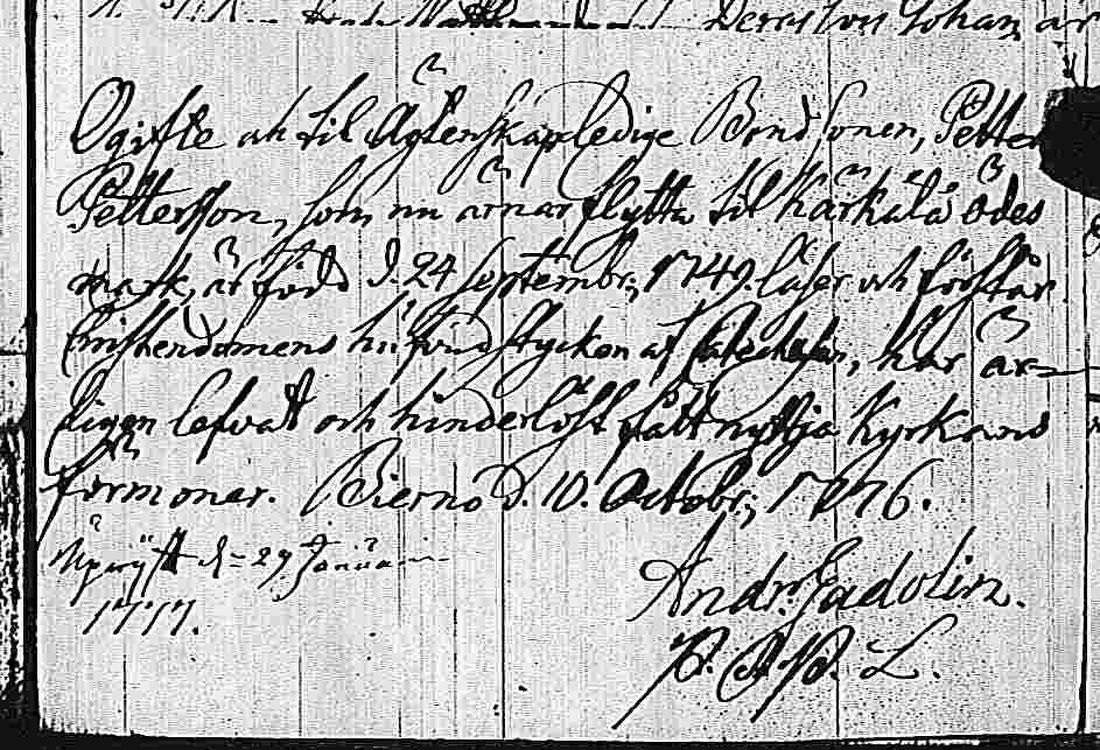 Dess Son Johan är
Ogifte ok til Ägtenskap ledige Bond Sonen, Petter
Pettersson, som nu ärnar flytta til Kärkälä ödes
mark, är född d. 24 Septembr; 1749. läser och förstår
Christendomens hufvudstycken af Catechesen, har är-
ligen lefvat och hinderlöst fått nyttja Kyrkans
förmoner. Bierno d. 10. Octobr; 1776.
Upvijst d= 29 Januä
1777.
Andr. Gadolin.
P. & P. L.